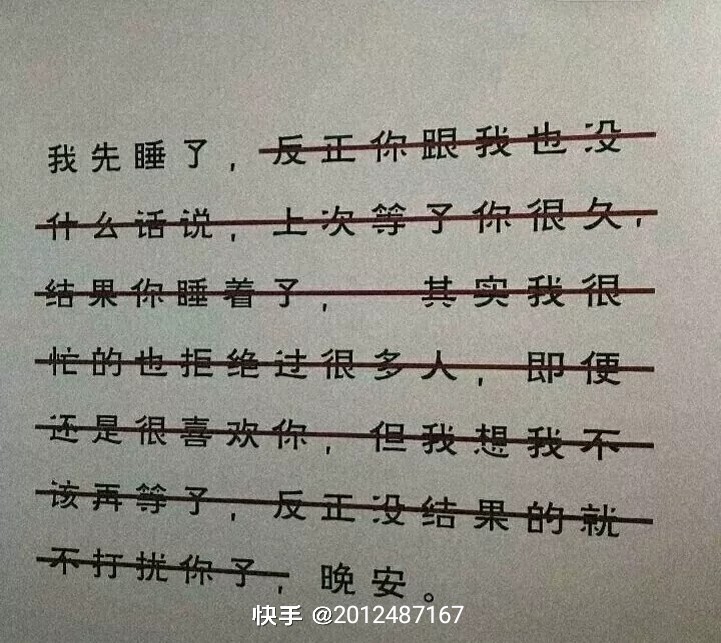 我先睡了，反正你跟我也没
什么话说，上次等了你很久，
结果你睡着了，　其实我很
忙的也拒绝过很多人，即便
还是很喜欢你，但我想我不
该再等了，反正没结果的就
不打扰你了，晚安。
快手 @2012487167